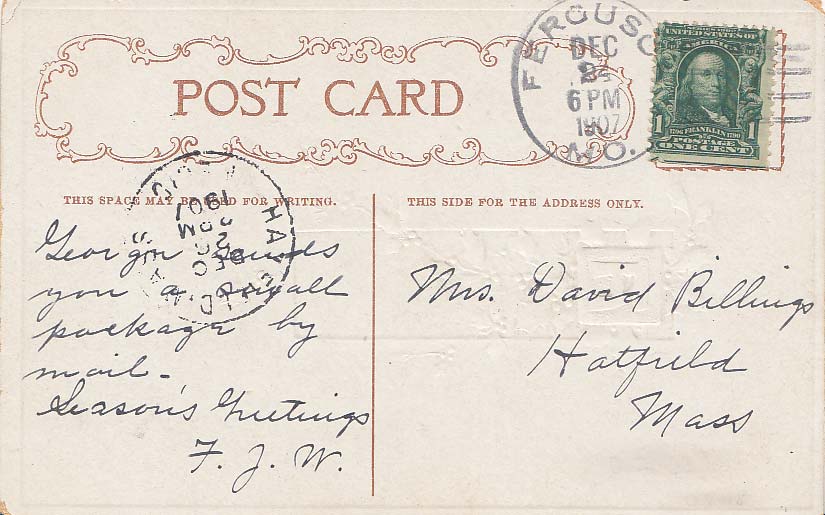 POST CARD
FERGUSO
DEC
6 PM
1907
MO.
UNITED STATES OF
AMERICA
1 1706 FRANKLIN 1790 1
POSTAGE
ONE CENT
THIS SPACE MAY BE USED FOR WRITING.
THIS SIDE FOR THE ADDRESS ONLY.
Georgia sends
you a small
package by
mail-
Season's Greetings
F. J. W.
Mrs. David Billings
Hatfield
Mass